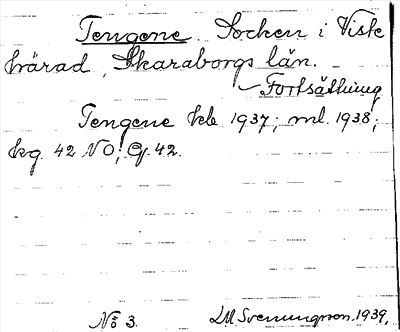 Tengene Socken i Viste
härad, Skaraborgs län.
Fortsättning
Tengene kb 1937; ml. 1938;
kg. 42 NO; Cj. 42.
No 3. D.M Svenungsson. 1939.